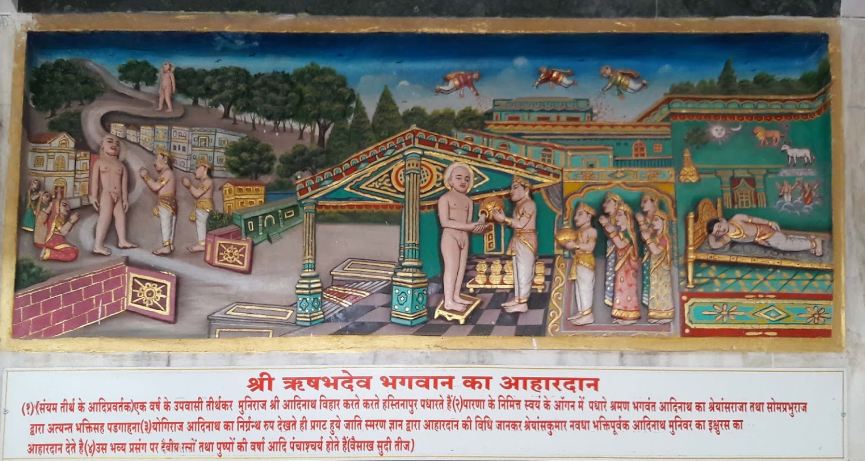 श्री ऋषभदेव भगवान का आहारदान
(१)(संयम तीर्थ के आदिप्रवर्तक)एक वर्ष के उपवासी तीर्थंकर मुनिराज श्री आदिनाथ विहार करते करते हस्तिनापुर पधारते हैं(२)पारणा के निमित्त स्वयं के आँगन में पधारे श्रमण भगवंत आदिनाथ का श्रेयांसराजा तथा सोमप्रभुराज
द्वारा अत्यन्त भक्तिसह पडगाहना(३)योगिराज आदिनाथ का निर्ग्रन्थ रुप देखते ही प्रगट हुये जाति स्मरण ज्ञान द्वारा आहारदान की विधि जानकर श्रेयांसकुमार नवधा भक्तिपूर्वक आदिनाथ मुनिवर का इक्षुरस का
आहारदान देते है(४)उस भव्य प्रसंग पर दैवीय रत्नों तथा पुष्पों की वर्षा आदि पंचाश्चर्य होते हैं(वैसाख सुदी तीज)